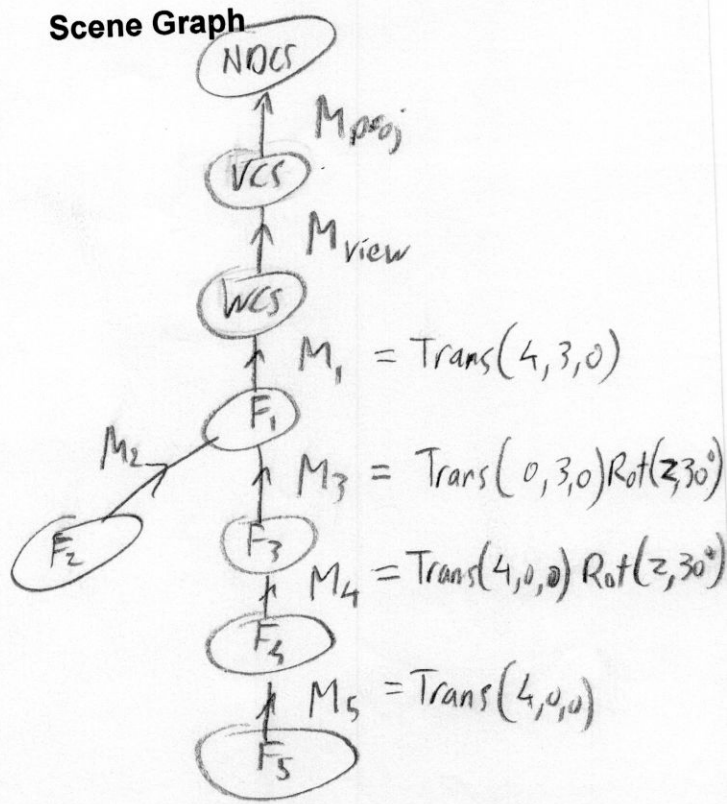 Scene Graph
NDCS
Mproj
VCS
Mview
WCS
M1 = Trans(4,3,0)
F1
M2
M3 = Trans(0,3,0)Rot(z,30°)
F2
F3
M4 = Trans(4,0,0) Rot(z,30°)
F4
M5 = Trans(4,0,0)
F5